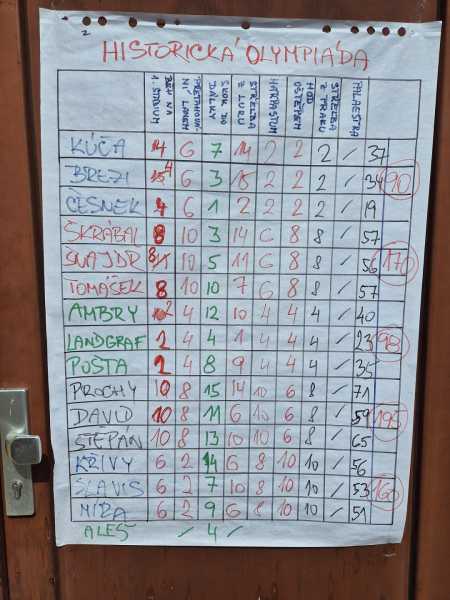 2
HISTORICKÁ OLYMPIÁDA
BĚH NA 1. STADIUM PŘETAHOVÁNÍ LANEM SKOK DO DÁLKY STŘELBA Z LUKU HARPASTUM HOD OŠTĚPEM STŘELBA Z PRAKU PALAESTRA
KÚČA 14 6 7 14 2 2 2 / 37
BŘEZI 4 6 3 15 2 2 2 / 34 90
ČESNEK 4 6 1 2 2 2 2 / 19
ŠKRÁBAL 8 10 3 14 6 8 8 / 57
ŠNAJDR 8 10 5 11 6 8 8 / 56 170
TOMÁŠEK 8 10 10 7 6 8 8 / 57
AMBRY 2 4 12 10 4 4 4 / 40
LANDGRAF 2 4 4 1 4 4 4 / 23 98
POŠTA 2 4 8 9 4 4 4 / 35
PROCHY 10 8 15 14 10 6 8 / 71
DAVID 10 8 11 6 10 6 8 / 59 195
ŠTĚPÁN 10 8 13 10 10 6 8 / 65
KŘIVY 6 2 14 6 8 10 10 / 56
SLAVIS 6 2 7 10 8 10 10 / 53 160
MÍRA 6 2 9 6 8 10 10 / 51
ALEŠ / 4 /